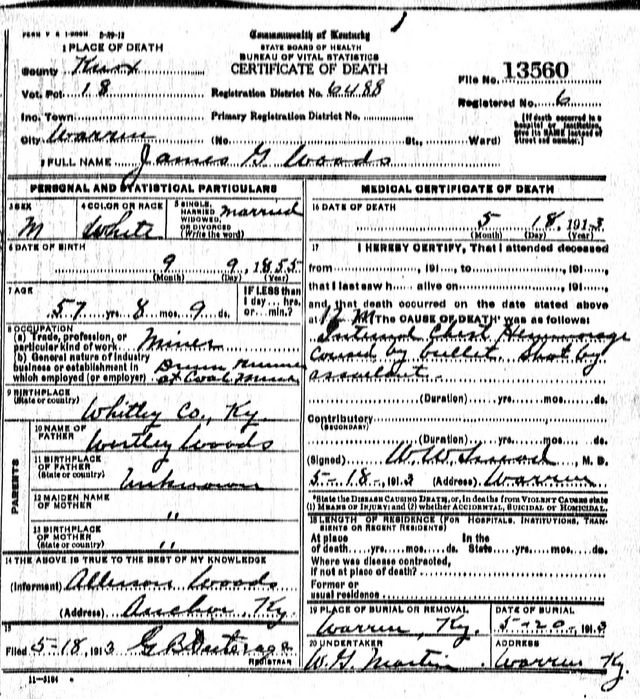 Commonwealth of Kentucky
STATE BOARD OF HEALTH
BUREAU OF VITAL STATISTICS
CERTIFICATE OF DEATH
1 PLACE OF DEATH
County Knox
Vot. Pct. 18
Registration District No. 6488
File No. 13560
Inc. Town
Primary Registration District No.
Registered No. 6
City Warren (No. St., Ward)
[If death occurred in a hospital or institution, give its NAME instead of street and number.]
2 FULL NAME James G Woods
PERSONAL AND STATISTICAL PARTICULARS
3 SEX M
4 COLOR OR RACE White
5 SINGLE, MARRIED WIDOWED, OR DIVORCED (Write the word) Married
6 DATE OF BIRTH
9 9, 1855
(Month) (Day) (Year)
7 AGE
57 yrs. 8 mos. 9 ds.
IF LESS than 1 day... hrs. or... min.?
8 OCCUPATION
(a) Trade, profession, or particular kind of work Miner
(b) General nature of industry business or establishment in which employed (or employer)
at Coal
9 BIRTHPLACE
(State or country) Whitley Co., Ky.
PARENTS
10 NAME OF FATHER Woods
11 BIRTHPLACE OF FATHER (State or country) Unknown
12 MAIDEN NAME OF MOTHER "
13 BIRTHPLACE OF MOTHER (State or country) "
14 THE ABOVE IS TRUE TO THE BEST OF MY KNOWLEDGE
(Informant) Woods
(Address) Ky.
15
Filed 5-18, 1913
REGISTRAR
11-5184
MEDICAL CERTIFICATE OF DEATH
16 DATE OF DEATH
5 18, 1913
(Month) (Day) (Year)
17 I HEREBY CERTIFY, That I attended deceased
from , 191 , to , 191 ,
that I last saw h alive on , 191 ,
and that death occurred on the date stated above
at 12 M The CAUSE OF DEATH was as follows:
Internal Chest Hemmorage
caused by bullet. Shot by
assailant.
(Duration) yrs. mos. ds.
Contributory
(SECONDARY)
(Duration) yrs. mos. ds.
(Signed) W. W. M. D.
5-18-, 1913 (Address) Warren
*State the DISEASE CAUSING DEATH, or, in deaths from VIOLENT CAUSES state
(1) MEANS OF INJURY; and (2) whether ACCIDENTAL, SUICIDAL or HOMICIDAL.
18 LENGTH OF RESIDENCE (FOR HOSPITALS, INSTITUTIONS, TRANSIENTS OR RECENT RESIDENTS)
At place of death yrs. mos. ds. In the State yrs. mos. ds.
Where was disease contracted,
if not at place of death?
Former or
usual residence
19 PLACE OF BURIAL OR REMOVAL
Warren, Ky.
DATE OF BURIAL
5-20-, 1913
20 UNDERTAKER
W. G. Martin
ADDRESS
Warren Ky.